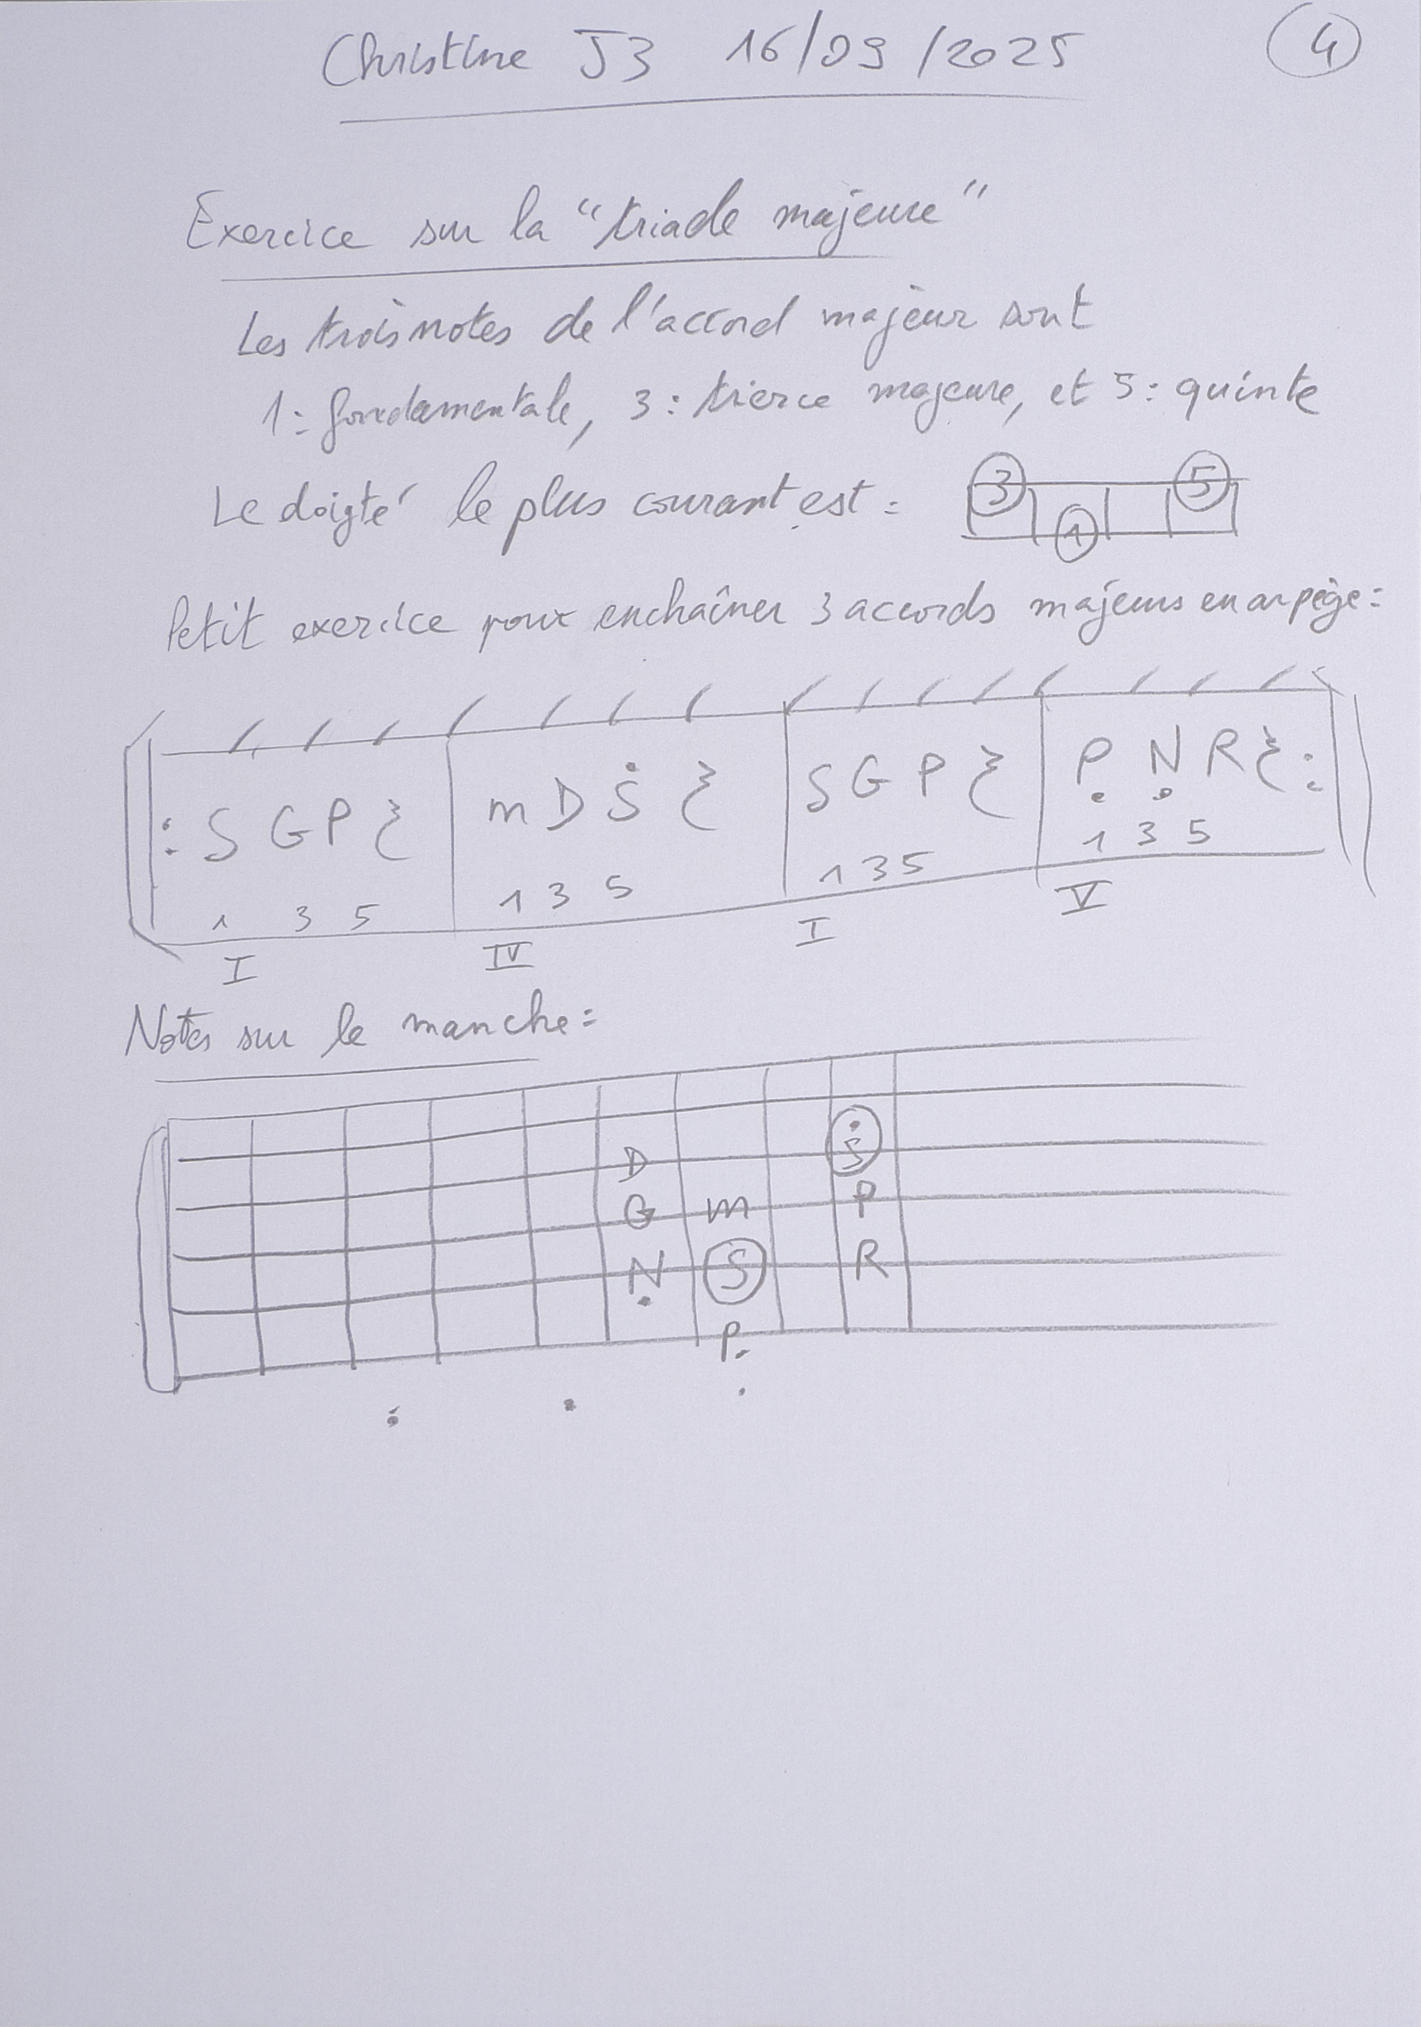 Christine J3 16/09/2025 4
Exercice sur la "triade majeure"
Les trois notes de l'accord majeur sont
1: fondamentale, 3: tierce majeure, et 5: quinte
Le doigté le plus courant est: 3 1 5
Petit exercice pour enchaîner 3 accords majeurs en arpège:
: S G P | m D Ṡ | S G P | P̣ Ṇ R :
1 3 5 1 3 5 1 3 5 1 3 5
I IV I V
Notes sur le manche:
D Ṡ
G m P
Ṇ S R
P̣